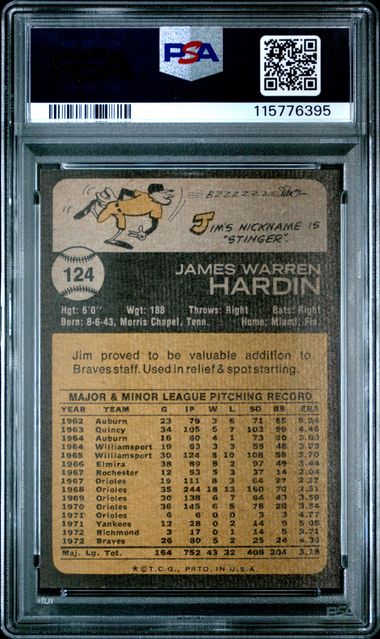 PSA
115776395
BZZZZZZZ
JIM'S NICKNAME IS
"STINGER".
124
JAMES WARREN
HARDIN
Hgt: 6'0" Wgt: 188 Throws: Right Bats: Right
Born: 8-6-43, Morris Chapel, Tenn. Home: Miami, Fla.
Jim proved to be valuable addition to
Braves staff. Used in relief & spot starting.
MAJOR & MINOR LEAGUE PITCHING RECORD
YEAR TEAM G IP W L SO BB ERA
1962 Auburn 23 79 3 6 71 65 5.24
1963 Quincy 34 105 5 7 103 99 4.46
1964 Auburn 16 60 4 1 73 50 3.60
1964 Williamsport 19 63 3 3 55 46
1965 Williamsport 30 124 5 10 108 58 3.70
1966 Elmira 38 89 8 2 97 49 3.44
1967 Rochester 12 53 5 3 37 14 2.04
1967 Orioles 19 111 8 3 64 27 2.27
1968 Orioles 35 244 18 13 160 70 2.51
1969 Orioles 30 138 6 7 64 43 3.59
1970 Orioles 36 145 6 5 78 26 3.54
1971 Orioles 6 6 0 0 3 3 4.77
1971 Yankees 12 28 0 2 14 9 5.08
1972 Richmond 3 17 0 1 14 5 3.71
1972 Braves 26 80 5 2 25 24
Maj. Lg. Tot. 164 752 43 32 408 204 3.18
*©T.C.G., PRTD. IN U.S.A.